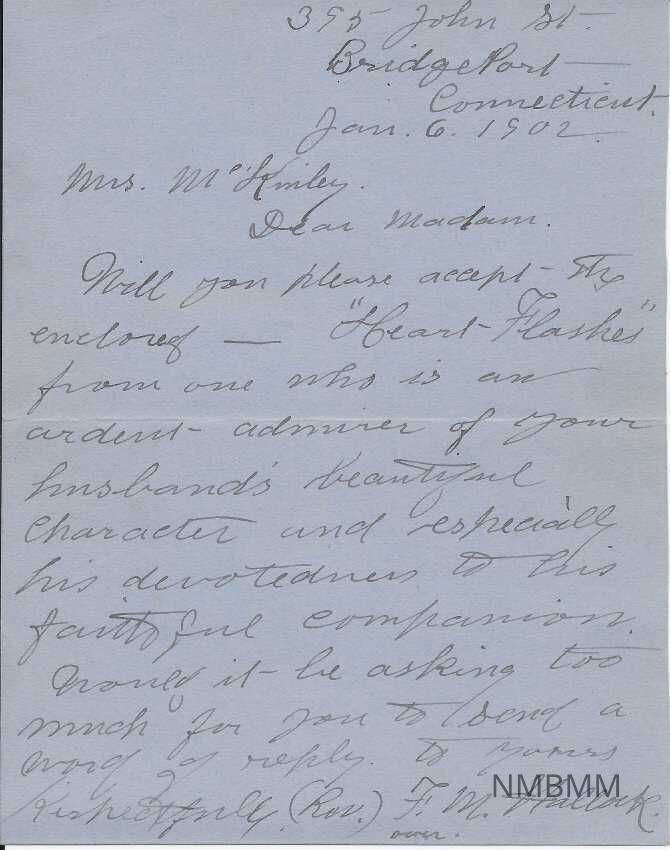 395 John St.
BridgePort
Connecticut.
Jan. 6. 1902.
Mrs. McKinley.
Dear Madam.
Will you please accept the
enclosed — "Heart-Flashes"
from one who is an
ardent admirer of your
husband's beautiful
character and especially
his devotedness to his
faithful companion.
Would it be asking too
much for you to send a
word of reply to yours
Respectfully (Rev.) F. M.
NMBMM
over.